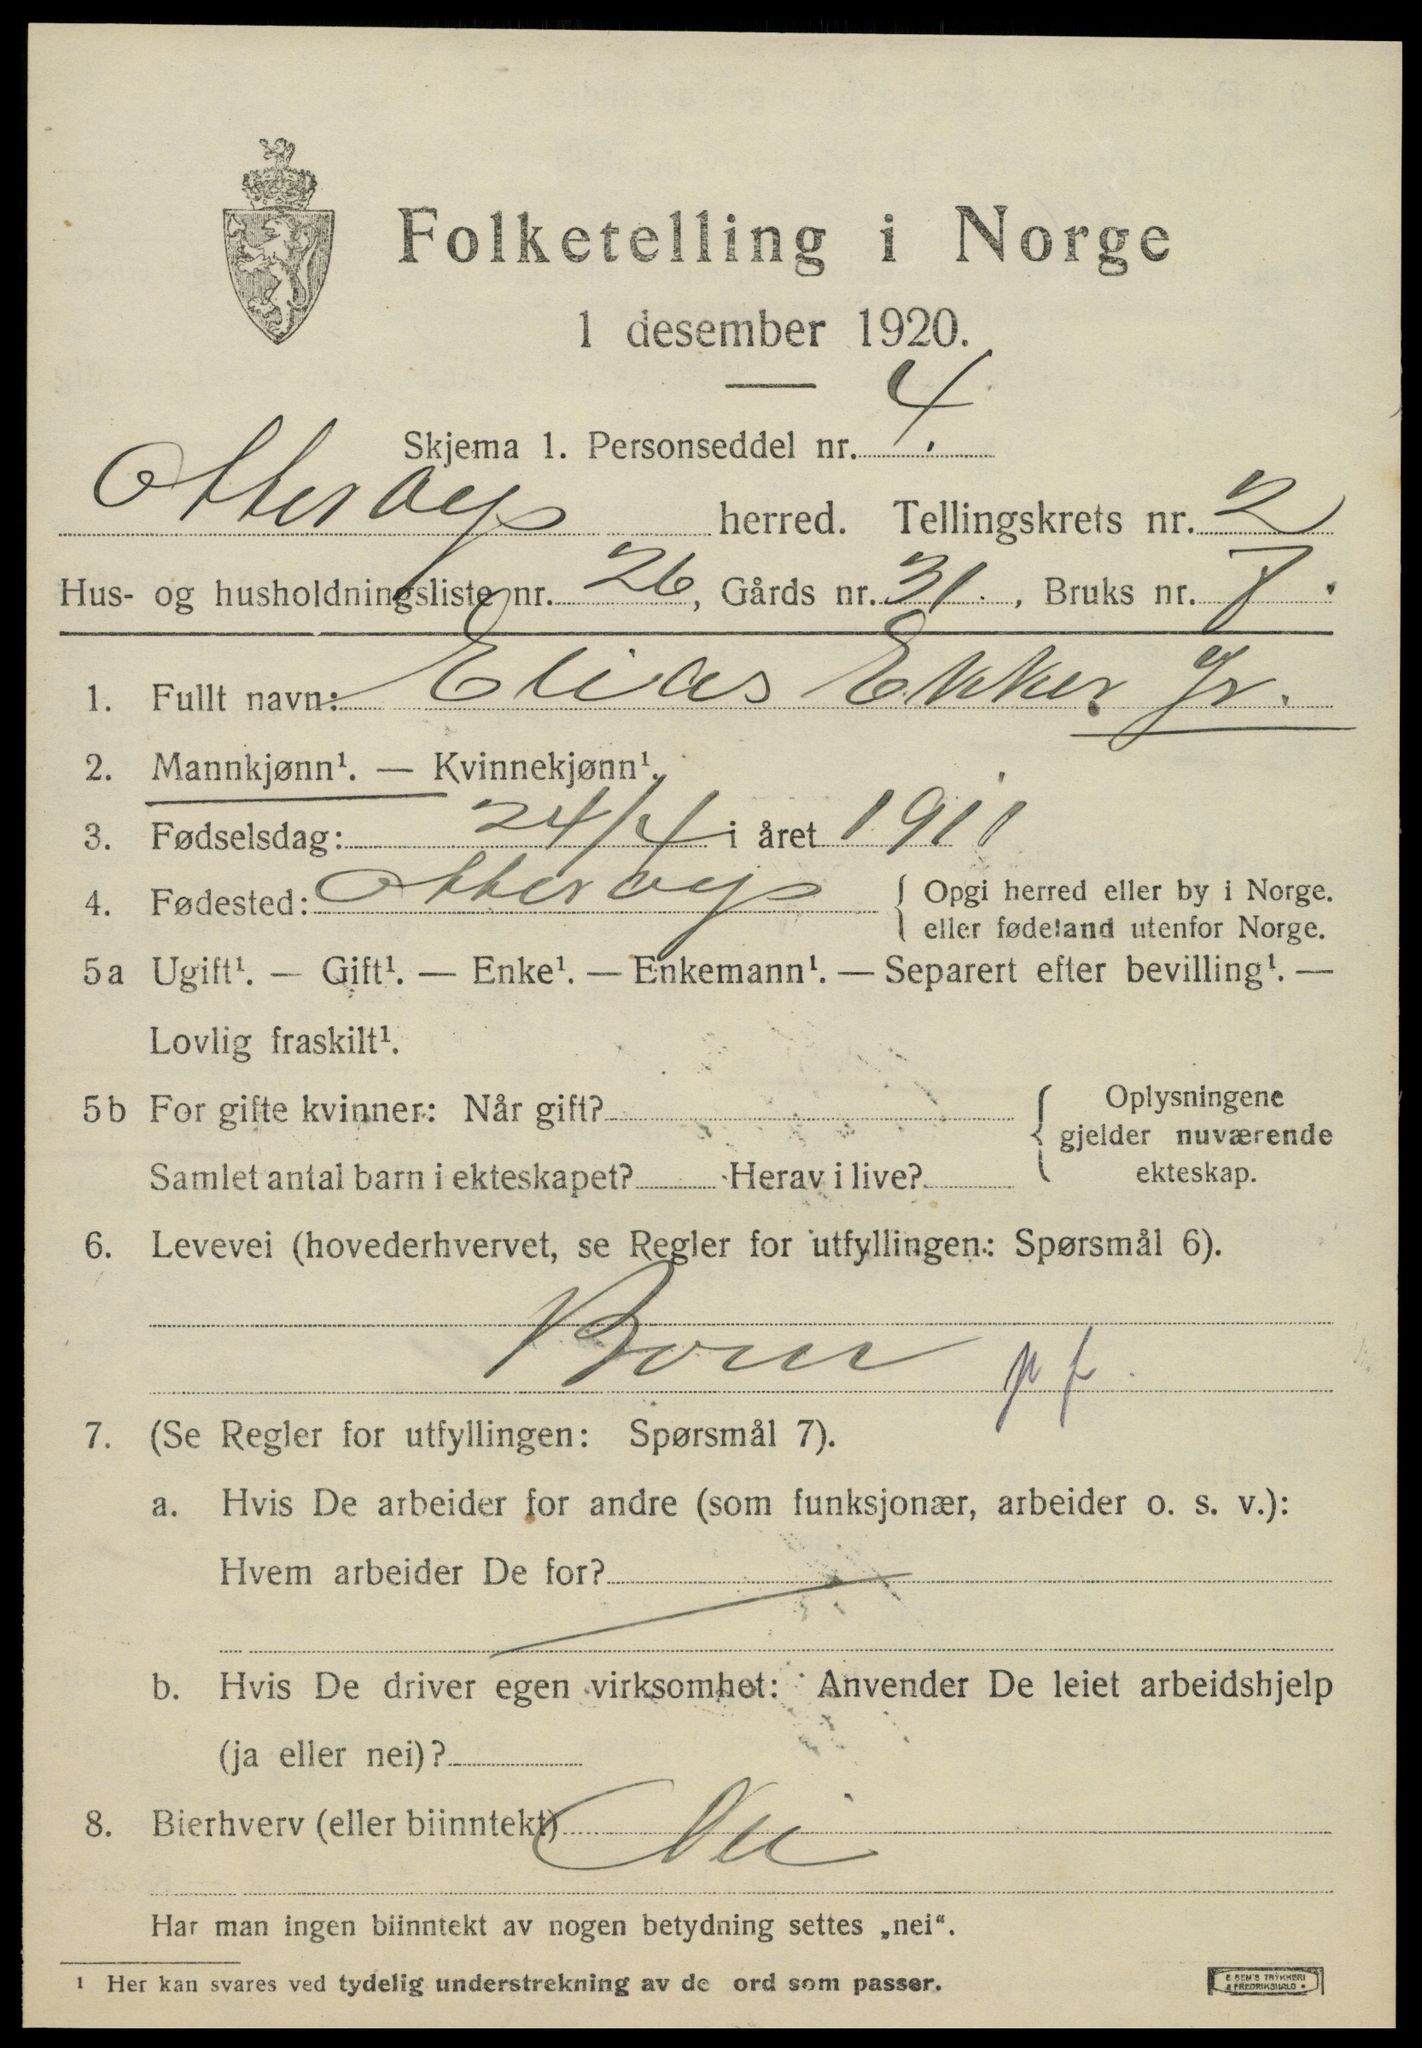 Folketelling i Norge
1 desember 1920.
Skjema 1. Personseddel nr. 4.
Otterøys herred. Tellingskrets nr. 2
Hus- og husholdningsliste nr. 26, Gårds nr. 31., Bruks nr. 7.
1. Fullt navn: Elias Ekker Jr.
2. Mannkjønn¹. — Kvinnekjønn¹.
3. Fødselsdag: 24/4 i året 1911
4. Fødested: Otterøys { Opgi herred eller by i Norge.
eller fødeland utenfor Norge.
5a Ugift¹. — Gift¹. — Enke¹. — Enkemann¹. — Separert efter bevilling¹. —
Lovlig fraskilt¹.
5b For gifte kvinner: Når gift? { Oplysningene
gjelder nuværende
Samlet antal barn i ekteskapet? Herav i live? ekteskap.
6. Levevei (hovederhvervet, se Regler for utfyllingen: Spørsmål 6).
Barn pf.
7. (Se Regler for utfyllingen: Spørsmål 7).
a. Hvis De arbeider for andre (som funksjonær, arbeider o. s. v.):
Hvem arbeider De for?
b. Hvis De driver egen virksomhet: Anvender De leiet arbeidshjelp
(ja eller nei)?
8. Bierhverv (eller biinntekt) Nei
Har man ingen biinntekt av nogen betydning settes „nei“.
¹ Her kan svares ved tydelig understrekning av de ord som passer.
E. SEM'S TRYKKERI
FREDRIKSHALD